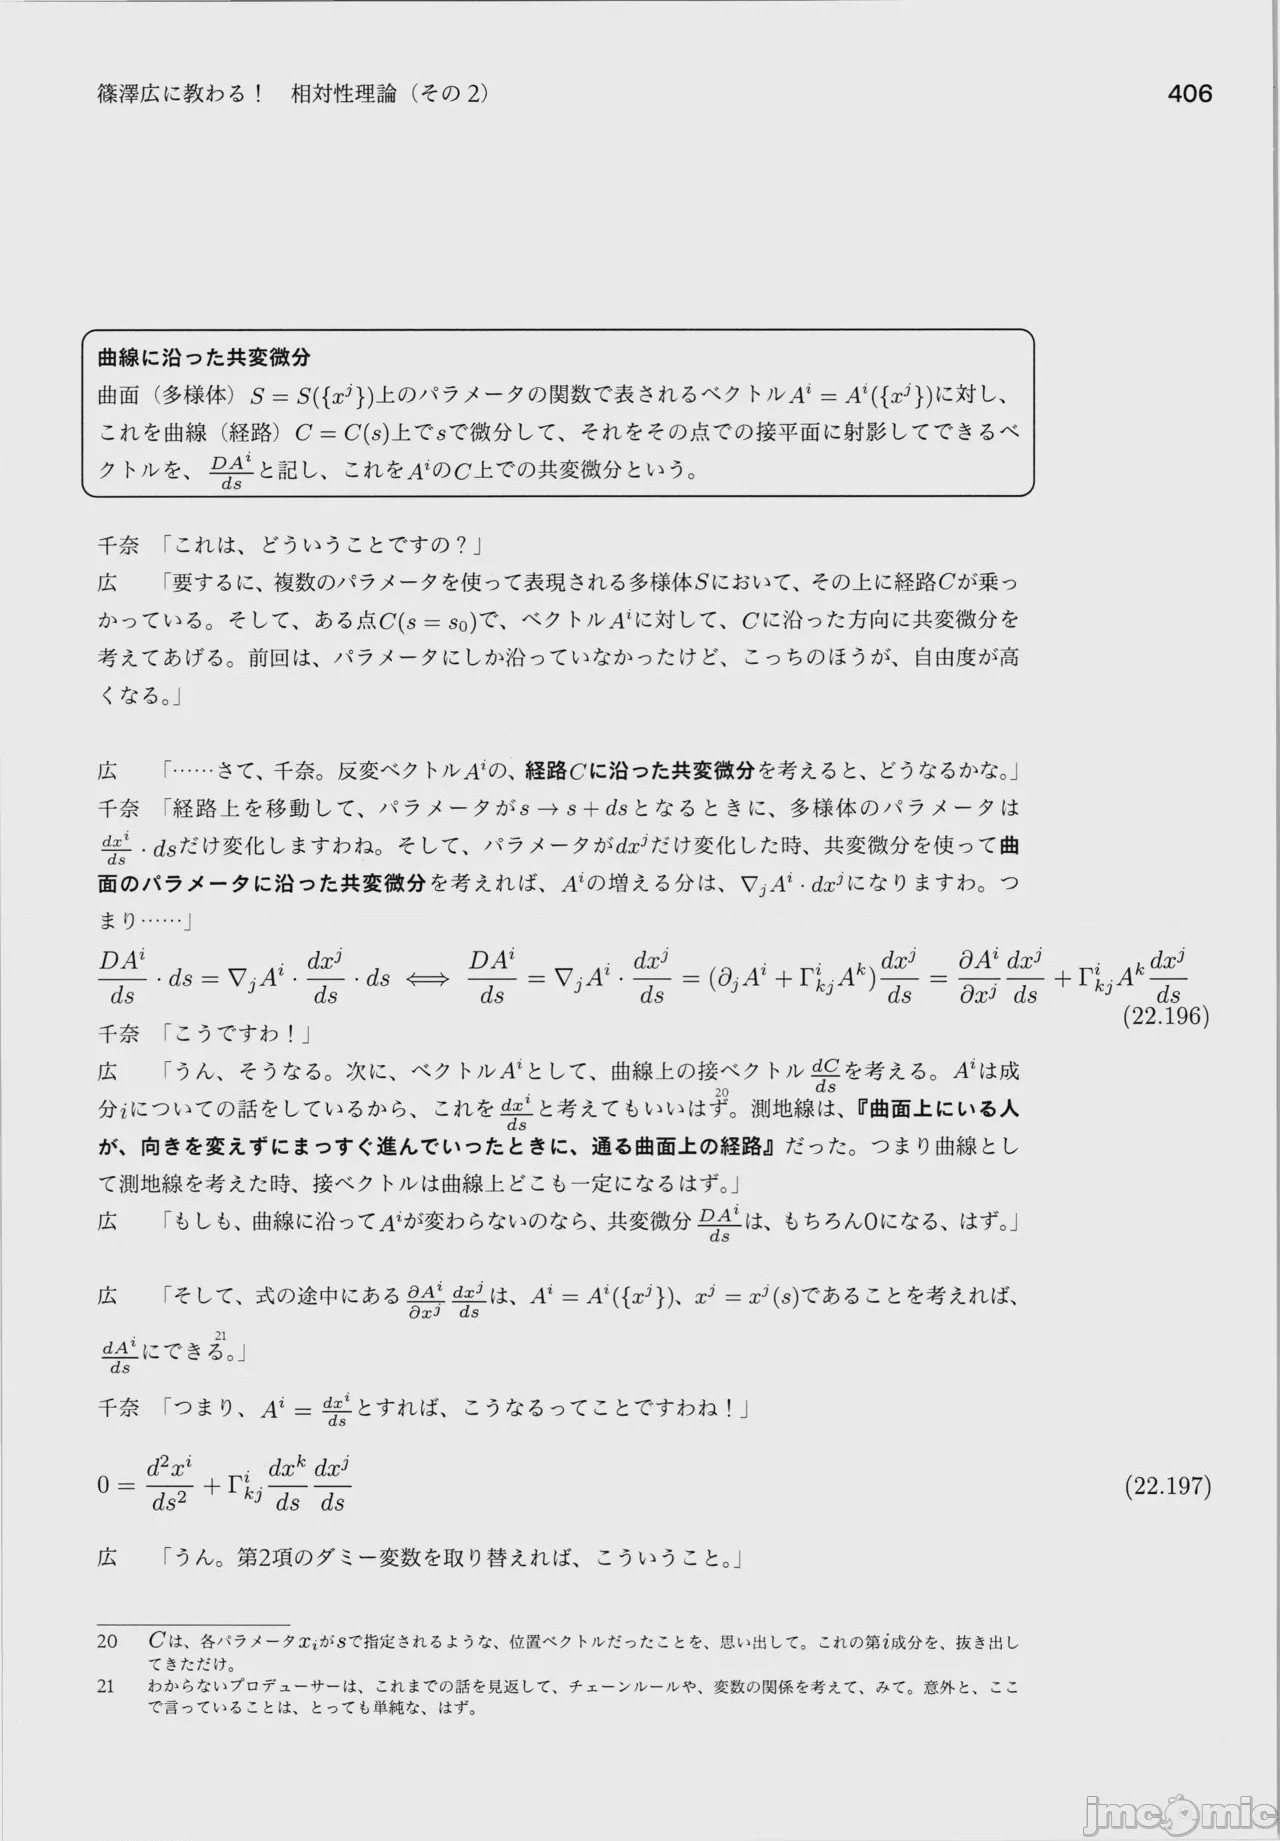 篠澤広に教わる！　相対性理論（その 2） 406
曲線に沿った共変微分
曲面（多様体）$S = S(\{x^j\})$上のパラメータの関数で表されるベクトル$A^i = A^i(\{x^j\})$に対し、
これを曲線（経路）$C = C(s)$上で$s$で微分して、それをその点での接平面に射影してできるベ
クトルを、$\frac{DA^i}{ds}$と記し、これを$A^i$の$C$上での共変微分という。
千奈　「これは、どういうことですの？」
広　　「要するに、複数のパラメータを使って表現される多様体$S$において、その上に経路$C$が乗っ
かっている。そして、ある点$C(s = s_0)$で、ベクトル$A^i$に対して、$C$に沿った方向に共変微分を
考えてあげる。前回は、パラメータにしか沿っていなかったけど、こっちのほうが、自由度が高
くなる。」
広　　「……さて、千奈。反変ベクトル$A^i$の、経路$C$に沿った共変微分を考えると、どうなるかな。」
千奈　「経路上を移動して、パラメータが$s \to s + ds$となるときに、多様体のパラメータは
$\frac{dx^i}{ds} \cdot ds$だけ変化しますわね。そして、パラメータが$dx^j$だけ変化した時、共変微分を使って曲
面のパラメータに沿った共変微分を考えれば、$A^i$の増える分は、$\nabla_j A^i \cdot dx^j$になりますわ。つ
まり……」
$\frac{DA^i}{ds} \cdot ds = \nabla_j A^i \cdot \frac{dx^j}{ds} \cdot ds \iff \frac{DA^i}{ds} = \nabla_j A^i \cdot \frac{dx^j}{ds} = (\partial_j A^i + \Gamma^i_{kj} A^k) \frac{dx^j}{ds} = \frac{\partial A^i}{\partial x^j} \frac{dx^j}{ds} + \Gamma^i_{kj} A^k \frac{dx^j}{ds}$
(22.196)
千奈　「こうですわ！」
広　　「うん、そうなる。次に、ベクトル$A^i$として、曲線上の接ベクトル$\frac{dC}{ds}$を考える。$A^i$は成
分$i$についての話をしているから、これを$\frac{dx^i}{ds}$と考えてもいいはず20。測地線は、『曲面上にいる人
が、向きを変えずにまっすぐ進んでいったときに、通る曲面上の経路』だった。つまり曲線とし
て測地線を考えた時、接ベクトルは曲線上どこも一定になるはず。」
広　　「もしも、曲線に沿って$A^i$が変わらないのなら、共変微分$\frac{DA^i}{ds}$は、もちろん0になる、はず。」
広　　「そして、式の途中にある$\frac{\partial A^i}{\partial x^j} \frac{dx^j}{ds}$は、$A^i = A^i(\{x^j\})$、$x^j = x^j(s)$であることを考えれば、
$\frac{dA^i}{ds}$にできる21。」
千奈　「つまり、$A^i = \frac{dx^i}{ds}$とすれば、こうなるってことですわね！」
$0 = \frac{d^2x^i}{ds^2} + \Gamma^i_{kj} \frac{dx^k}{ds} \frac{dx^j}{ds}$ (22.197)
広　　「うん。第2項のダミー変数を取り替えれば、こういうこと。」
20　$C$は、各パラメータ$x_i$が$s$で指定されるような、位置ベクトルだったことを、思い出して。これの第$i$成分を、抜き出し
てきただけ。
21　わからないプロデューサーは、これまでの話を見返して、チェーンルールや、変数の関係を考えて、みて。意外と、ここ
で言っていることは、とっても単純な、はず。
jmcomic